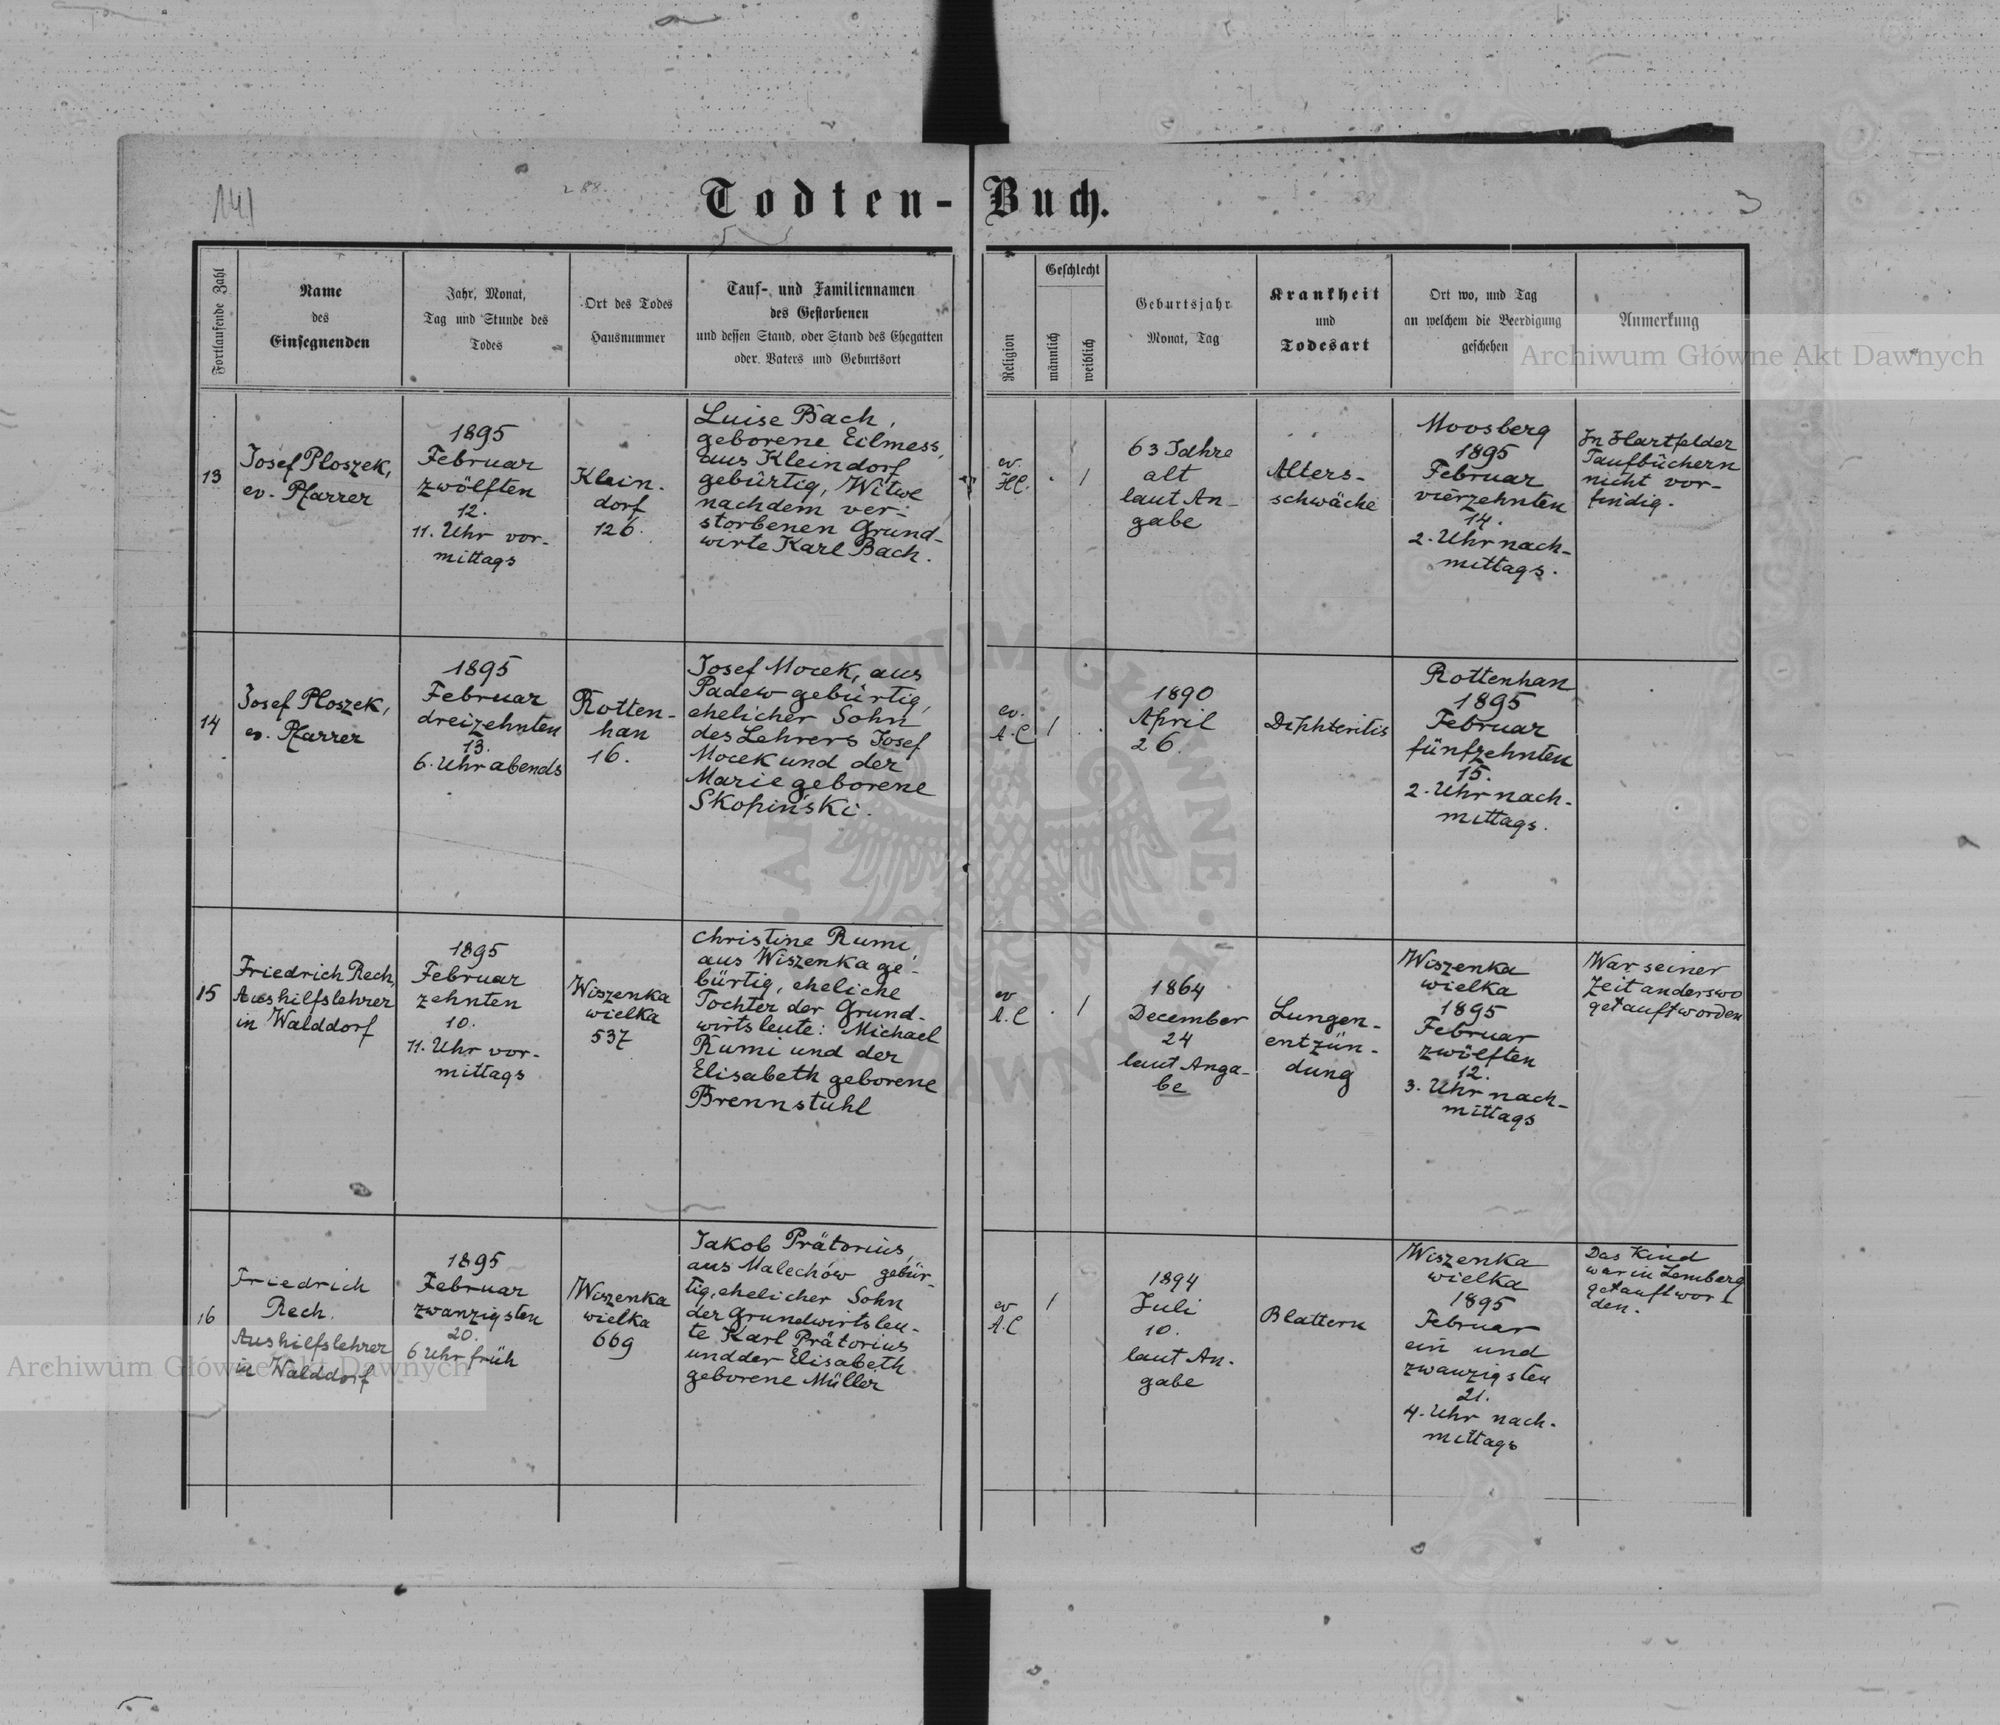 141
288.
Todten-Buch.
3
Fortlaufende Zahl
Name
des
Einsegnenden
Jahr, Monat,
Tag und Stunde des
Todes
Ort des Todes
Hausnummer
Tauf- und Familiennamen
des Gestorbenen
und dessen Stand, oder Stand des Ehegatten
oder Vaters und Geburtsort
Religion
Geschlecht
männlich
weiblich
Geburtsjahr
Monat, Tag
Krankheit
und
Todesart
Ort wo, und Tag
an welchem die Beerdigung
geschehen
Anmerkung
Archiwum Główne Akt Dawnych
13
Josef Ploszek,
ev. Pfarrer
1895
Februar
zwölften
12.
11. Uhr vor-
mittags
Klein-
dorf
126.
Luise Bach,
geborene Eilmess,
aus Kleindorf
gebürtig, Witwe
nachdem ver-
storbenen Grund-
wirte Karl Bach.
ev.
H.C.
1
63 Jahre
alt
laut An-
gabe
Alters-
schwäche
Moosberg
1895
Februar
vierzehnten
14.
2. Uhr nach-
mittags.
In Hartfelder
Taufbüchern
nicht vor-
findig.
14
Josef Ploszek,
ev. Pfarrer
1895
Februar
dreizehnten
13.
6. Uhr abends
Rotten-
han
16.
Josef Mocek, aus
Padew gebürtig,
ehelicher Sohn
des Lehrers Josef
Mocek und der
Marie geborene
Skopiński.
ev.
A.C
1
1890
April
26.
Diphteritis
Rottenhan
1895
Februar
fünfzehnten
15.
2. Uhr nach-
mittags.
15
Friedrich Rech,
Aushilfslehrer
in Walddorf
1895
Februar
zehnten
10.
11. Uhr vor-
mittags
Wiszenka
wielka
537
Christine Rumi
aus Wiszenka ge-
bürtig, eheliche
Tochter der Grund-
wirtsleute: Michael
Rumi und der
Elisabeth geborene
Brennstuhl
ev
A.C
1
1864
December
24
laut Anga-
be
Lungen-
entzün-
dung
Wiszenka
wielka
1895
Februar
zwölften
12.
3. Uhr nach-
mittags
War seiner
Zeit anderswo
getauft worden
16
Friedrich
Rech.
Aushilfslehrer
in Walddorf
1895
Februar
zwanzigsten
20.
6 Uhr früh
Wiszenka
wielka
669
Jakob Prätorius,
aus Malechów gebür-
tig, ehelicher Sohn
der Grundwirtsleu-
te Karl Prätorius
und der Elisabeth
geborene Müller
ev
A.C
1
1894
Juli
10.
laut An-
gabe
Blattern
Wiszenka
wielka
1895
Februar
ein und
zwanzigsten
21.
4. Uhr nach-
mittags
Das Kind
war in Lemberg
getauft wor-
den.
Archiwum Główne Akt Dawnych